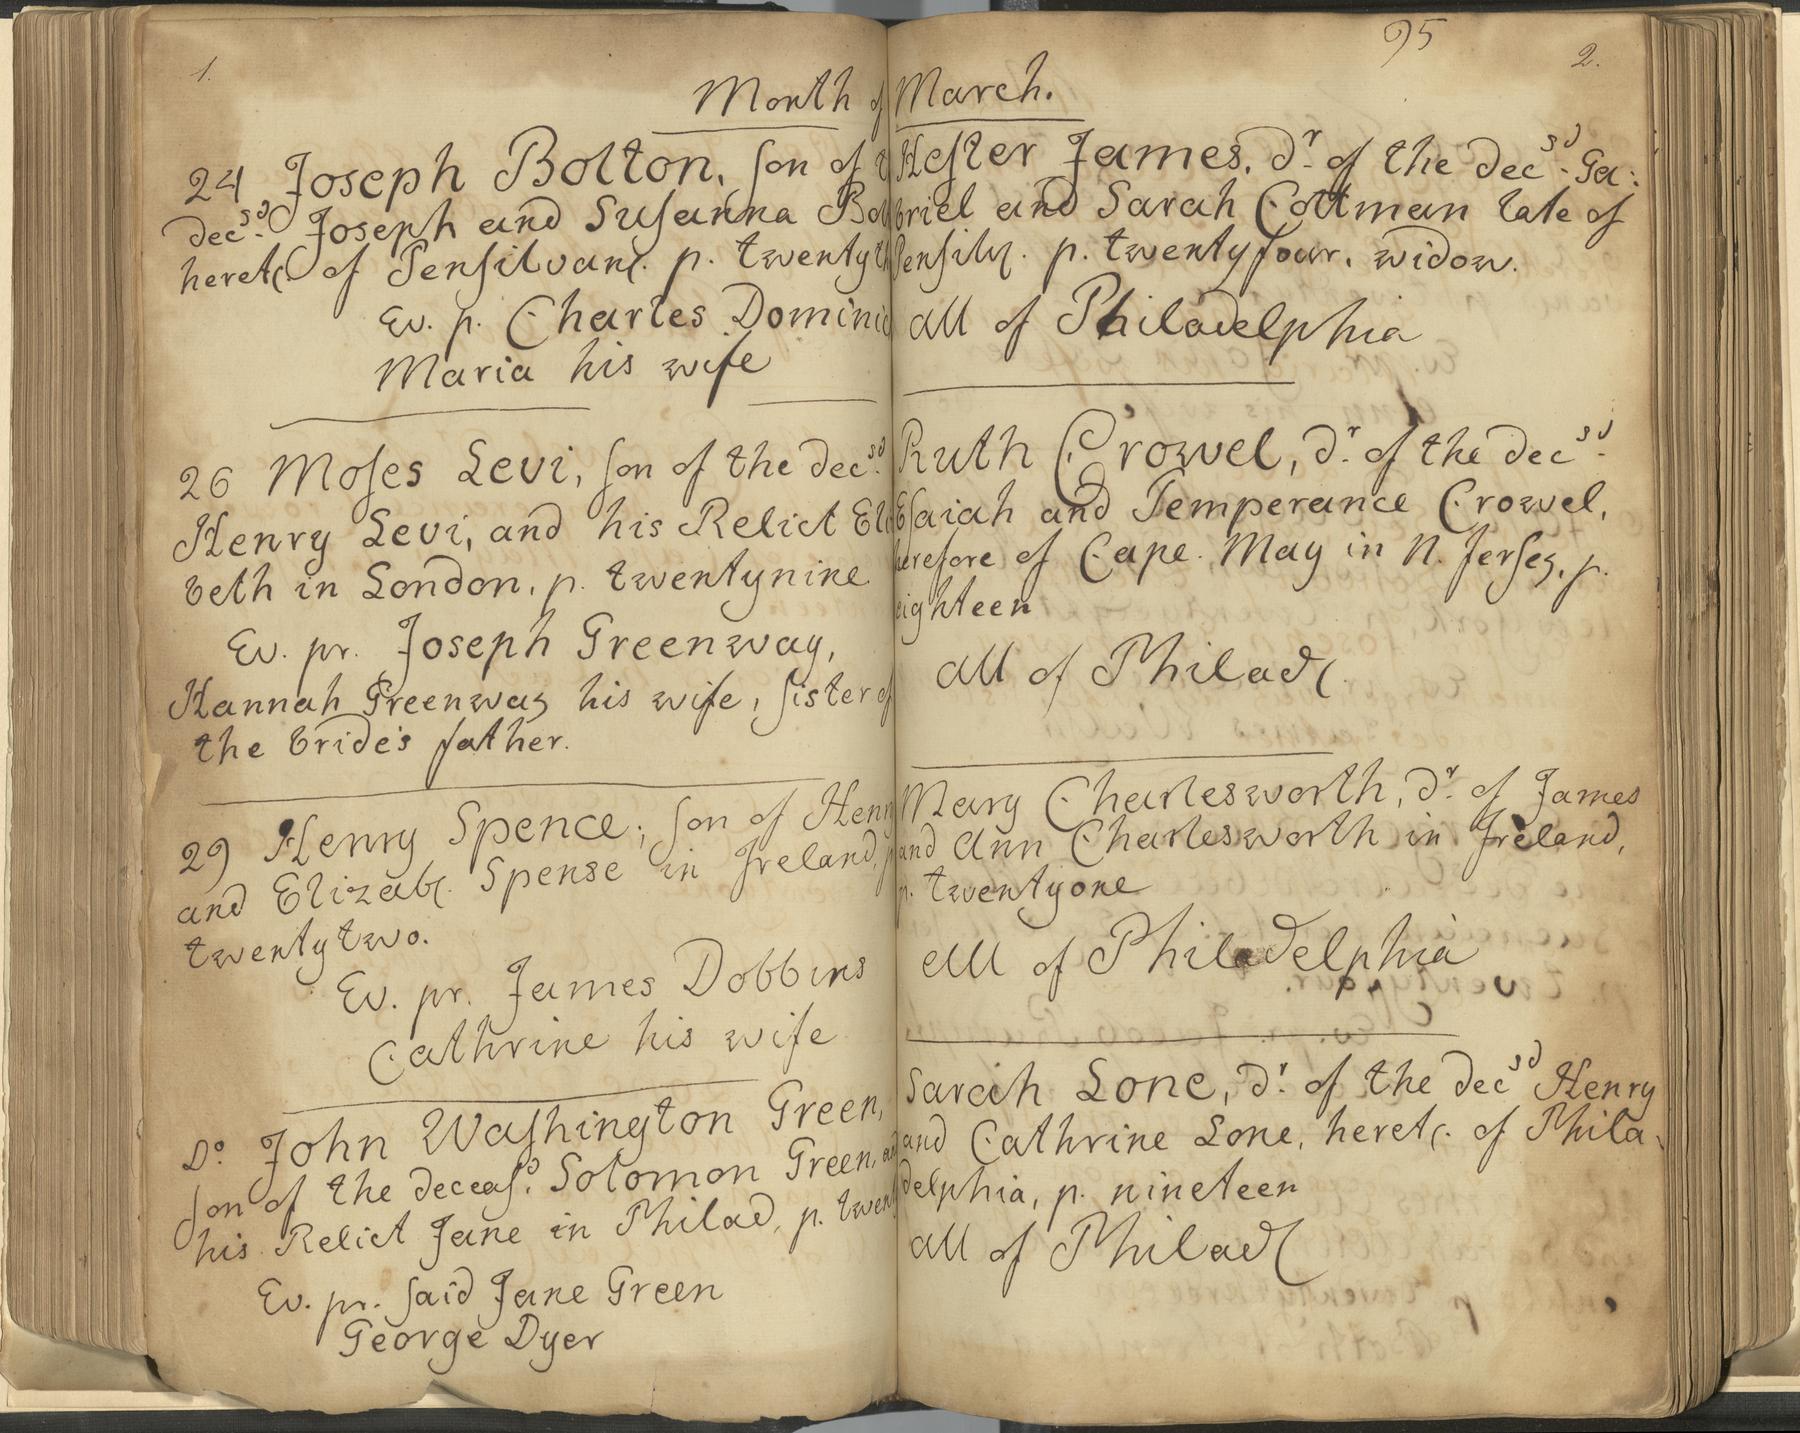 1.
Month of
24 Joseph Bolton, son of
decsd. Joseph and Susanna
heret. of Pensilvan. p. twenty
Ev. p. Charles
Maria his wife
26 Moses Levi, son of the decsd.
Henry Levi, and his Relict
beth in London, p. twentynine
Ev. pr. Joseph Greenway,
Hannah Greenway his wife, sister of
the bride's father.
29 Henry Spence, son of
and Elizab. Spense in Ireland,
twentytwo.
Ev. pr. James Dobbins
Cathrine his wife
Do. John Washington Green,
son of the deceasd. Solomon Green,
his Relict Jane in Philad, p.
Ev. pr. said Jane Green
George Dyer
95
2.
March.
Hester James, dr. of the decsd. Ga:
briel and Sarah Cottman late of
Pensilv. p. twentyfour, widow.
all of Philadelphia
Ruth Crowel, dr. of the decsd.
Esaiah and Temperance Crowel,
herefore of Cape May in N. Jersey, p.
eighteen
all of Philad.
Mary Charlesworth, dr. of James
and Ann Charlesworth in Ireland,
p. twentyone
all of Philadelphia
Sarah Lone, dr. of the decsd Henry
and Cathrine Lone, heret. of Phila
delphia, p. nineteen
all of Philad.